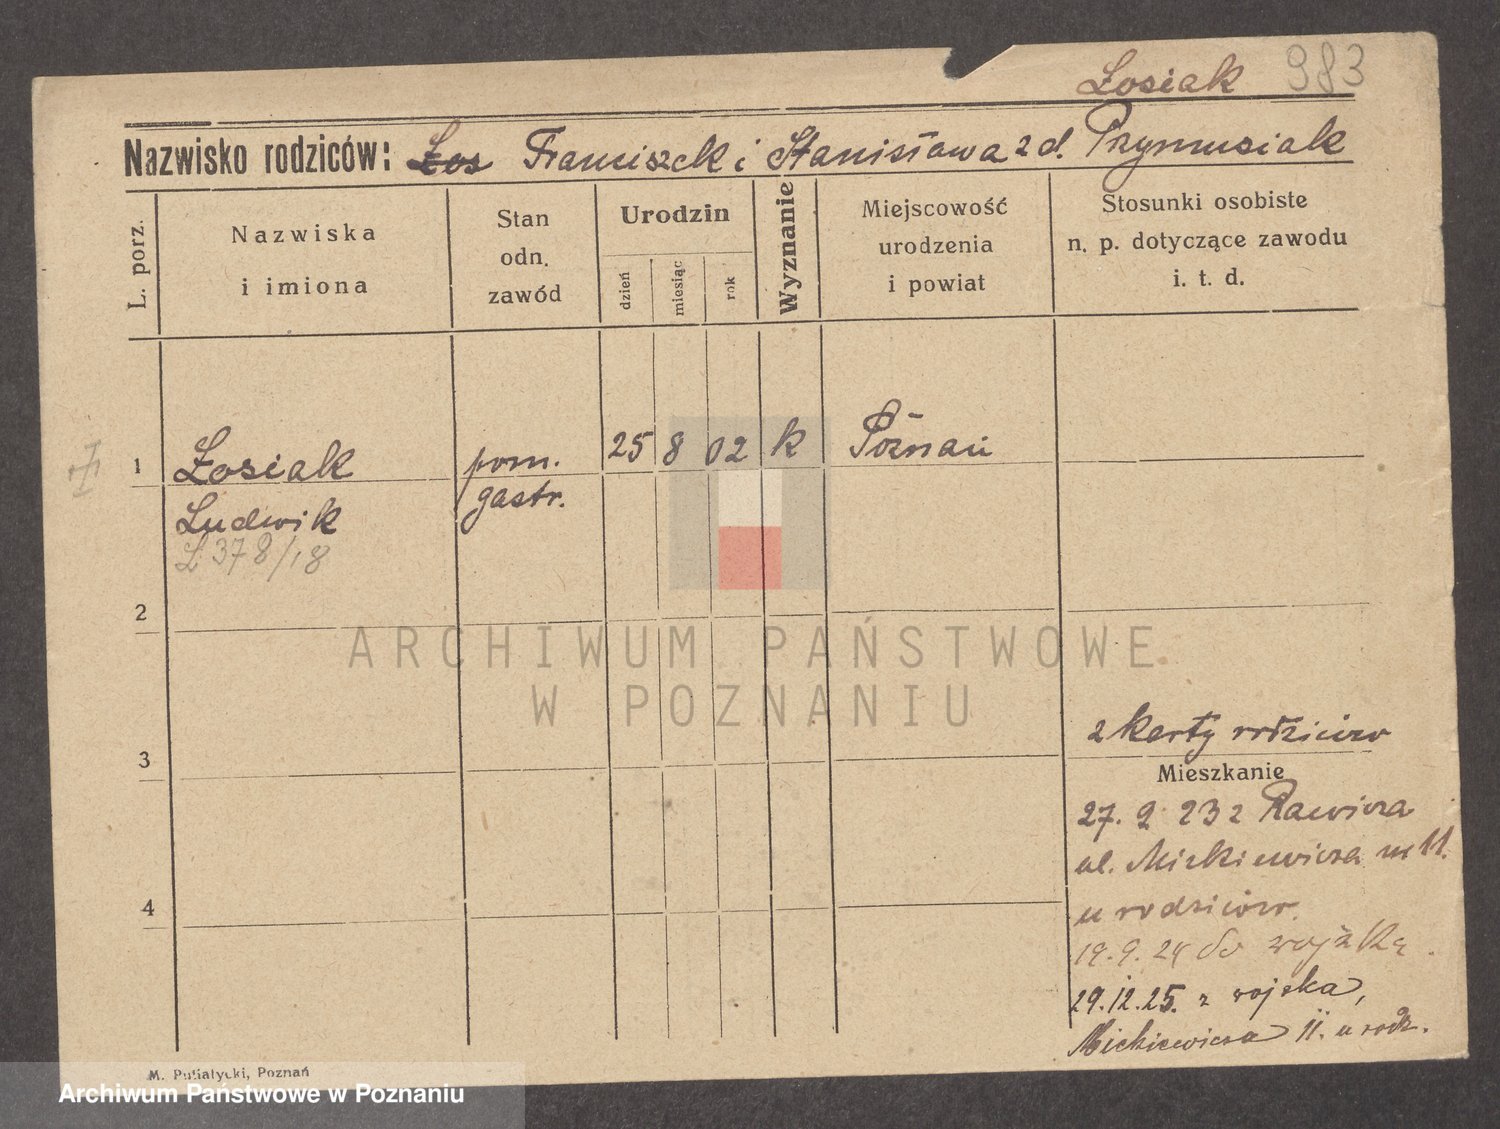 Łosiak 983
Nazwisko rodziców: Łos Franciszek i Stanisława z d. Przymusiak
L. porz.
Nazwiska
i imiona
Stan
odn.
zawód
Urodzin
dzień
miesiąc
rok
Wyznanie
Miejscowość
urodzenia
i powiat
Stosunki osobiste
n. p. dotyczące zawodu
i. t. d.
1 Łosiak pom. 25 8 02 k Poznań
Ludwik gastr.
Ł 378/18
2
ARCHIWUM PAŃSTWOWE
W POZNANIU
3
2 karty rodziców
Mieszkanie
27. 9 23 z Rawicza
ul. Mickiewicza nr 11.
u rodziców.
4
19.9.24 do wojska.
29.12.25. z wojska,
Mickiewicza 11. u rodz.
M. Putiatycki, Poznań
Archiwum Państwowe w Poznaniu